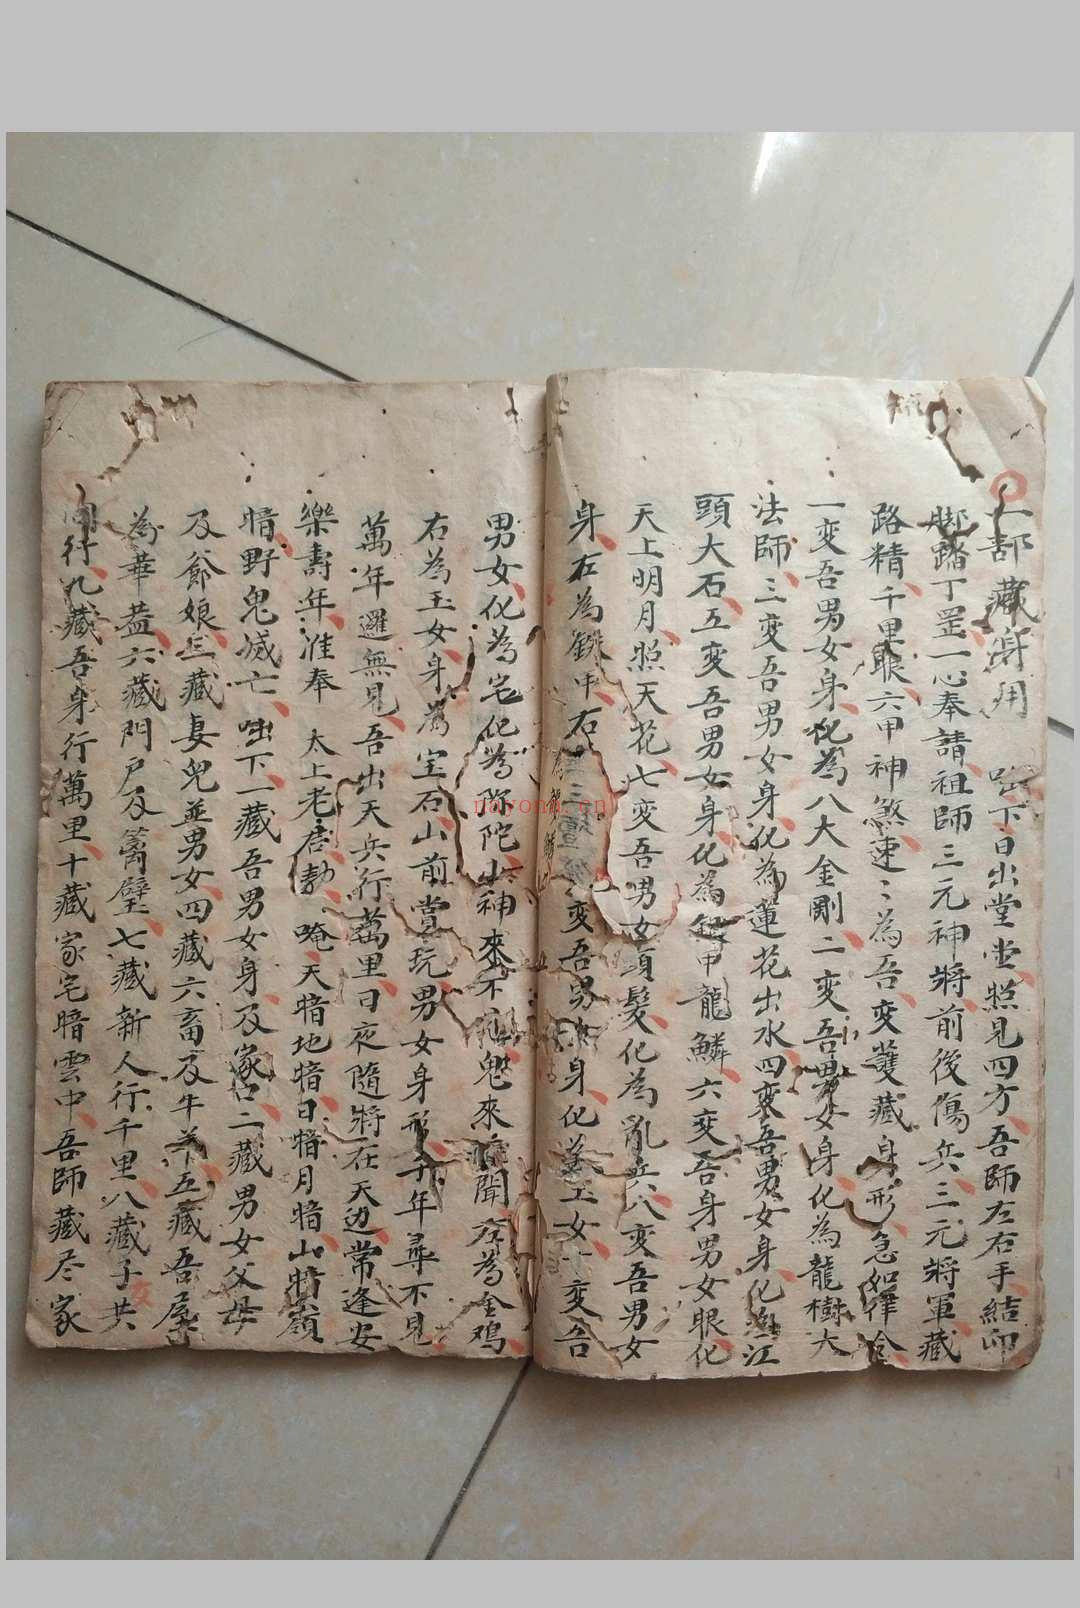 一部藏身用 咄下日出堂堂照見四方吾師左右手結印
脚踏丁罡一心奉請祖師三元神將前後傷兵三元將軍藏
路精千里眼六甲神煞速〻為吾变護藏身形急如律令
一变吾男女身化為八大金剛二变吾男女身化為龍樹大
法師三变吾男女身化為蓮花出水四变吾男女身化為江
頭大石五变吾男女身化為銀甲龍鱗六变吾身男女眼化
天上明月照天花七变吾男女頭髮化為亂兵八变吾男女
身左為銕甲右 变吾男 身化為玉女十变吾
男女化為宅化為陀山神來不 鬼來 聞 為金鸡
右為玉女身為宝石山前賞玩男女身形千年尋不見
萬年邏無見吾出天兵行萬里日夜隨將在天边常逢安
樂壽年准奉 太上老君勅 唵天暗地暗日暗月暗山暗嶺
暗野鬼滅亡咄下一藏吾男女身及家口二藏男女父母
及爺娘三藏妻兒並男女四藏六畜及牛羊五藏吾屋
為華盖六藏門户及籬壁七藏新人行千里八藏子共
同行九藏吾身行萬里十藏家宅暗雲中吾師藏尽家
nayona.cn